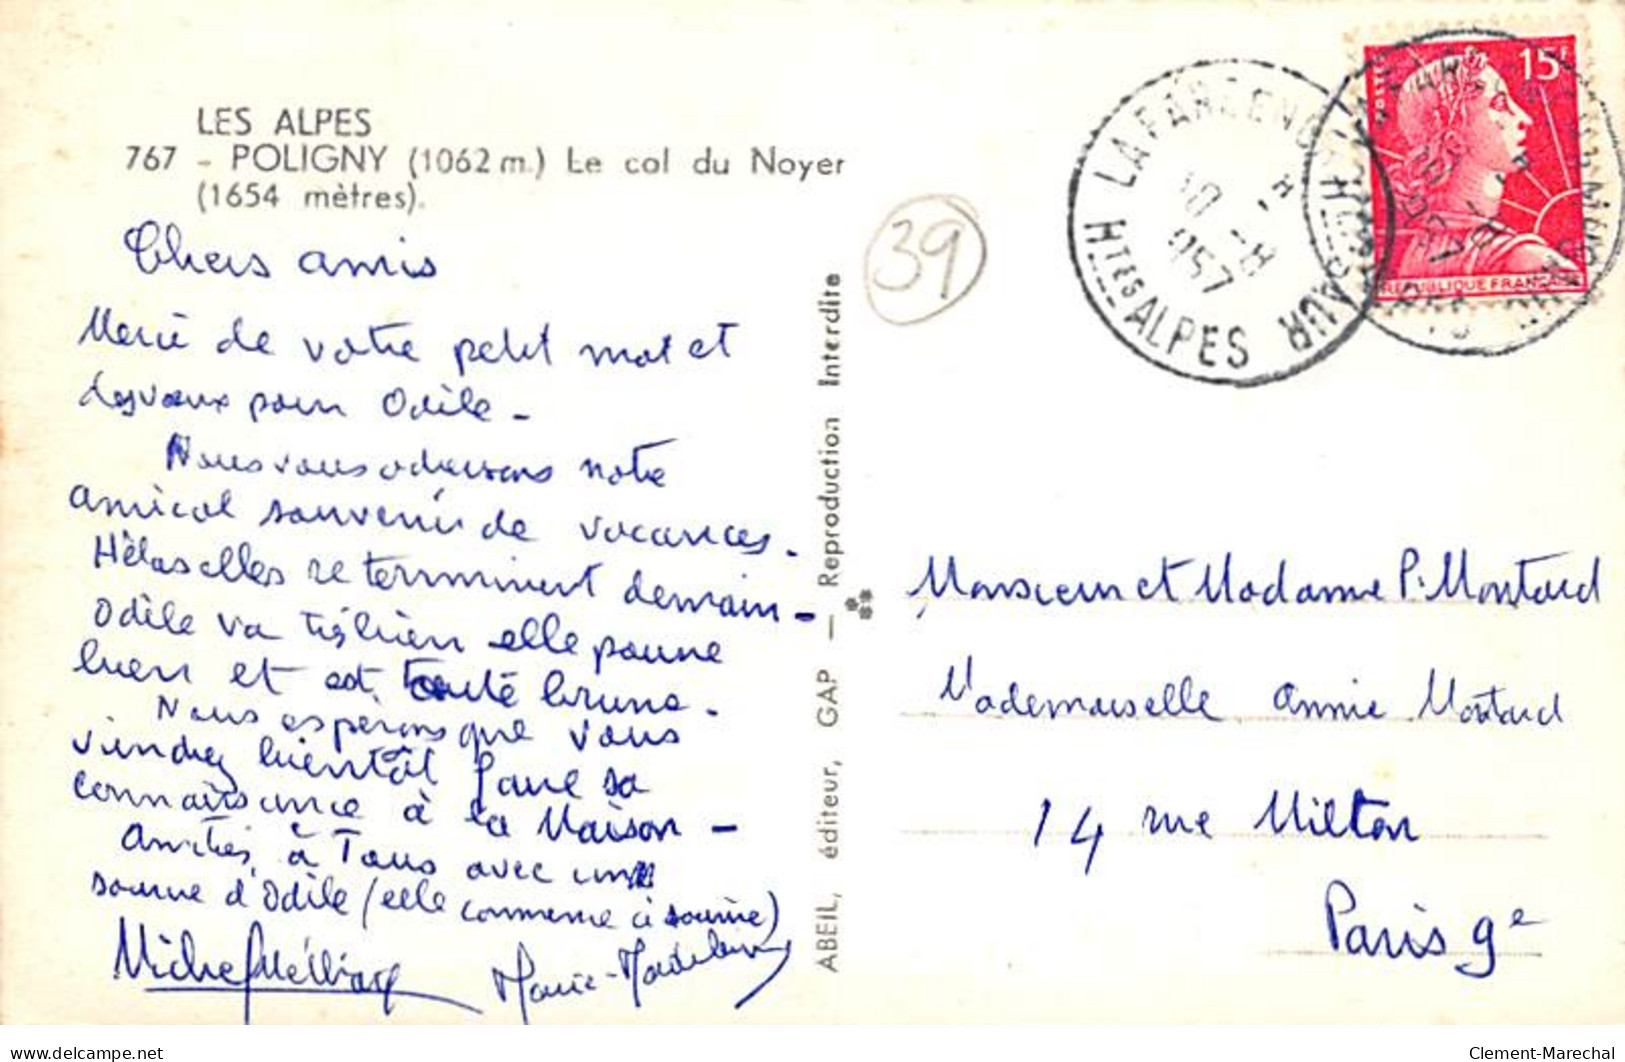 LES ALPES
767 - POLIGNY (1062 m.) Le col du Noyer
(1654 mètres).
Chers amis
Merci de votre petit mot et
des vœux pour Odile -
Nous vous adressons notre
amical souvenir de vacances -
Hélas elles se terminent demain -
Odile va très bien elle pousse
bien et est toute brune -
Nous espérons que vous
viendrez bientôt faire sa
connaissance à la Maison -
Amitiés à Tous avec un
sourire d'Odile (elle commence à sourire)
Michel
Marie-Madeleine
ABEIL, éditeur, GAP — Reproduction Interdite
39
LA FARE EN CHAMPSAUR
10 - 8
1957
Htes ALPES
15F
POSTES
REPUBLIQUE FRANCAISE
Monsieur et Madame P. Montard
Mademoiselle Annie Montard
14 rue Milton
Paris 9e
www.delcampe.net
Clement-Marechal